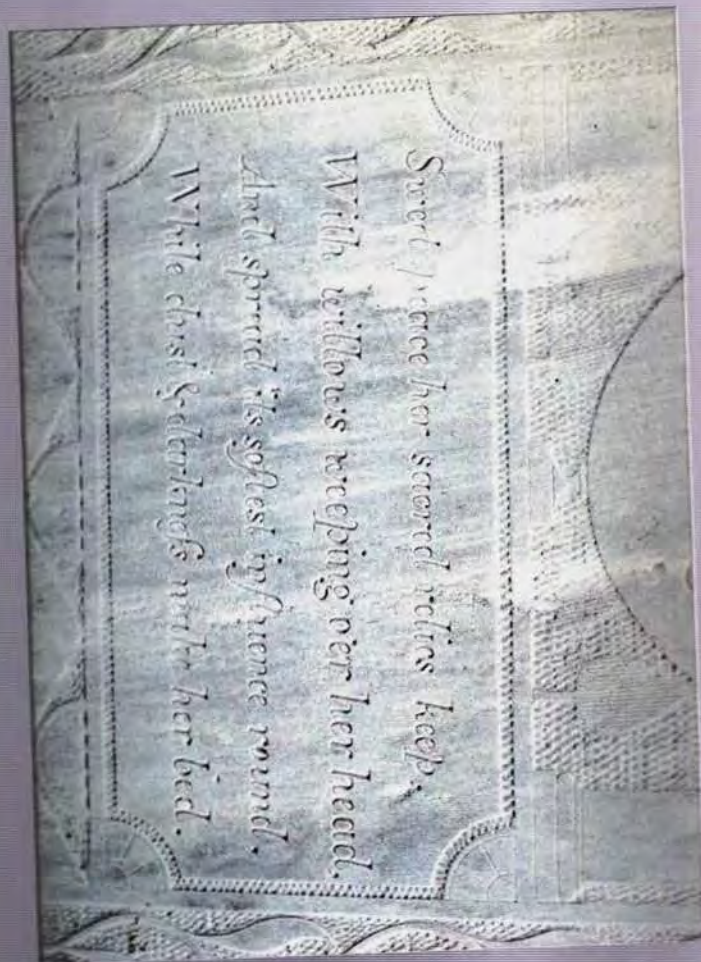 Sweet peace her sacred relics keep,
With willows weeping o'er her head.
And spread its softest influence round.
While dust & darkneſs make her bed.